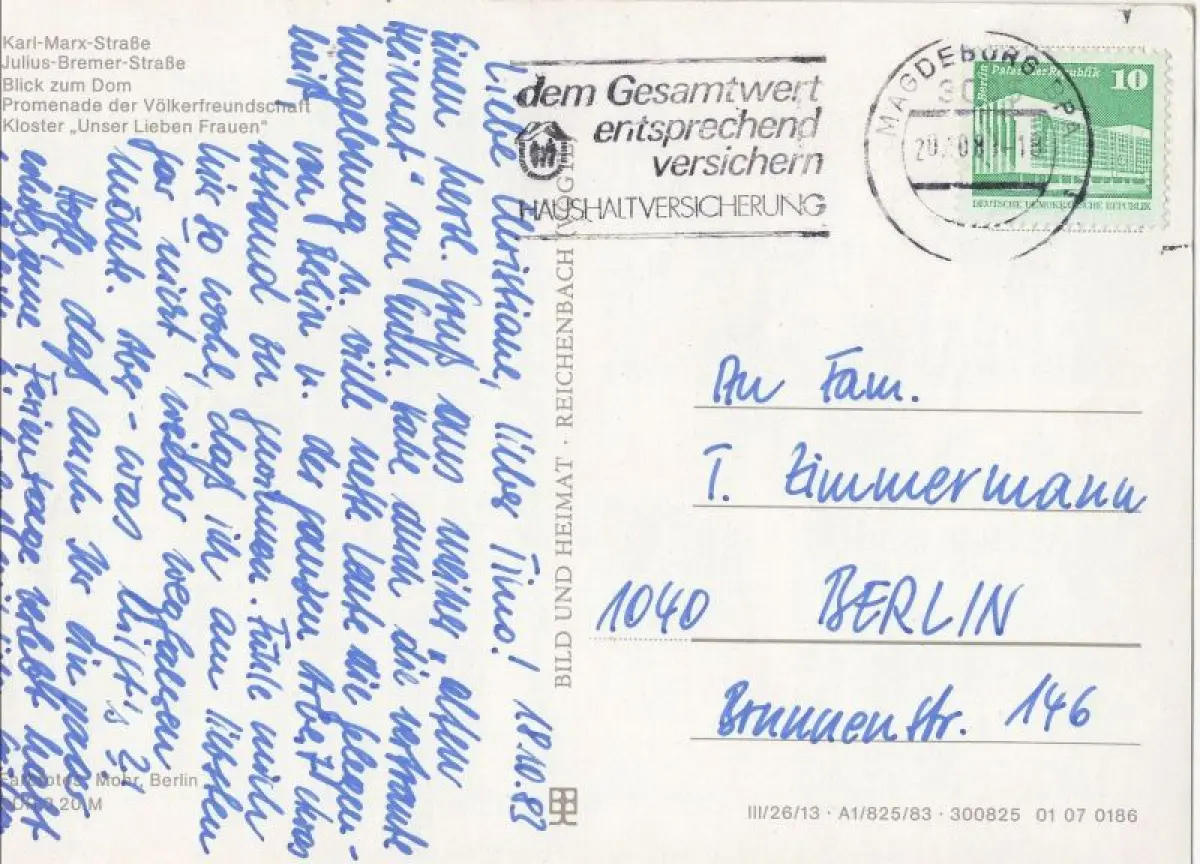 Karl-Marx-Straße
Julius-Bremer-Straße
Blick zum Dom
Promenade der Völkerfreundschaft
Kloster „Unser Lieben Frauen“
dem Gesamtwert
entsprechend
versichern
HAUSHALTVERSICHERUNG
MAGDEBURG
Berlin Palast der Republik 10
DEUTSCHE DEMOKRATISCHE REPUBLIK
18.10.83
Liebe Christiane, lieber Timo!
Einen herzl. Gruß aus meiner „alten
Heimat“ an Euch. Habe durch die vertraute
Umgebung u. viele nette Leute die Gelegen-
heit von Berlin u. der ganzen Arbeit etwas
Abstand zu gewinnen. Fühle mich
hier so wohl, daß ich am liebsten
gar nicht wieder wegfahren
müßte. Aber - was hilft's?
Hoffe, daß auch Ihr ein paar
erholsame Ferientage erlebt habt
BILD UND HEIMAT · REICHENBACH
An Fam.
T. Zimmermann
1040 BERLIN
Brunnenstr. 146
Mohr, Berlin
III/26/13 · A1/825/83 · 300825 01 07 0186